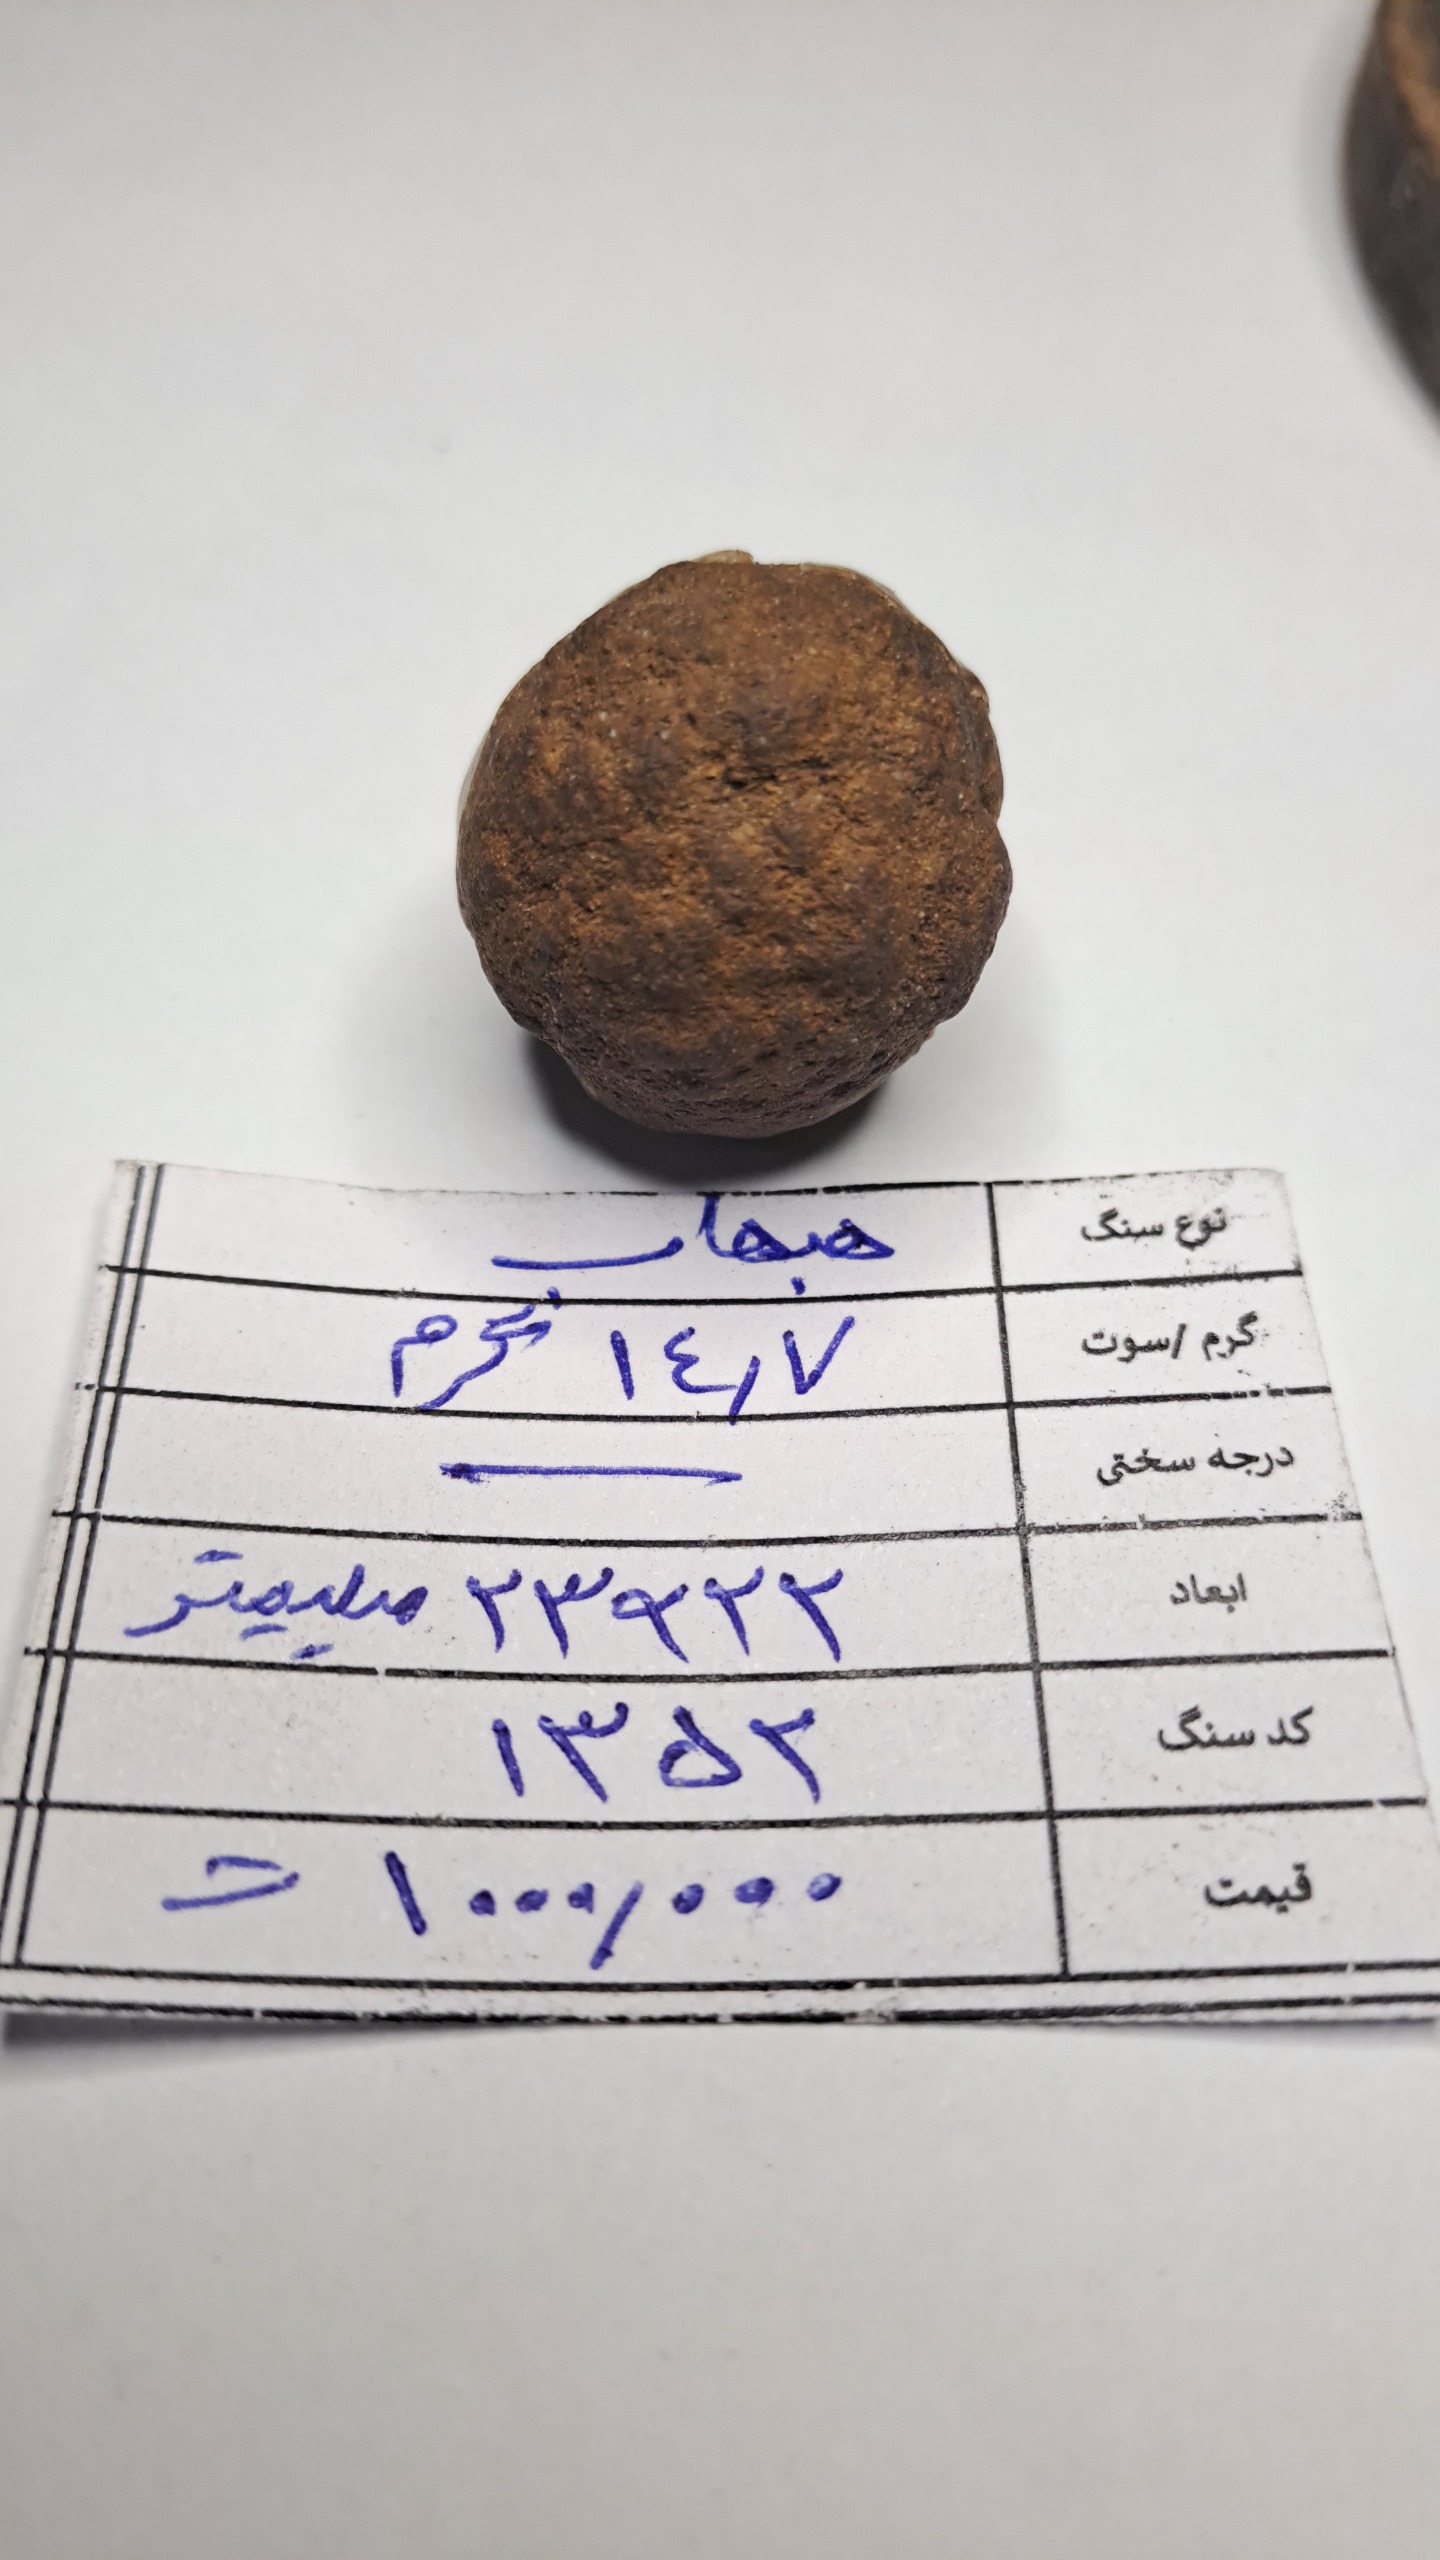 نوع سنگ هبهاب
گرم /سوت ۱٤٫۷ گرم
درجه سختی —
ابعاد ۲۳×۲۲ میلیمتر
کد سنگ ۱۳۵۲
قیمت ۱۰۰۰٫۰۰۰ ت